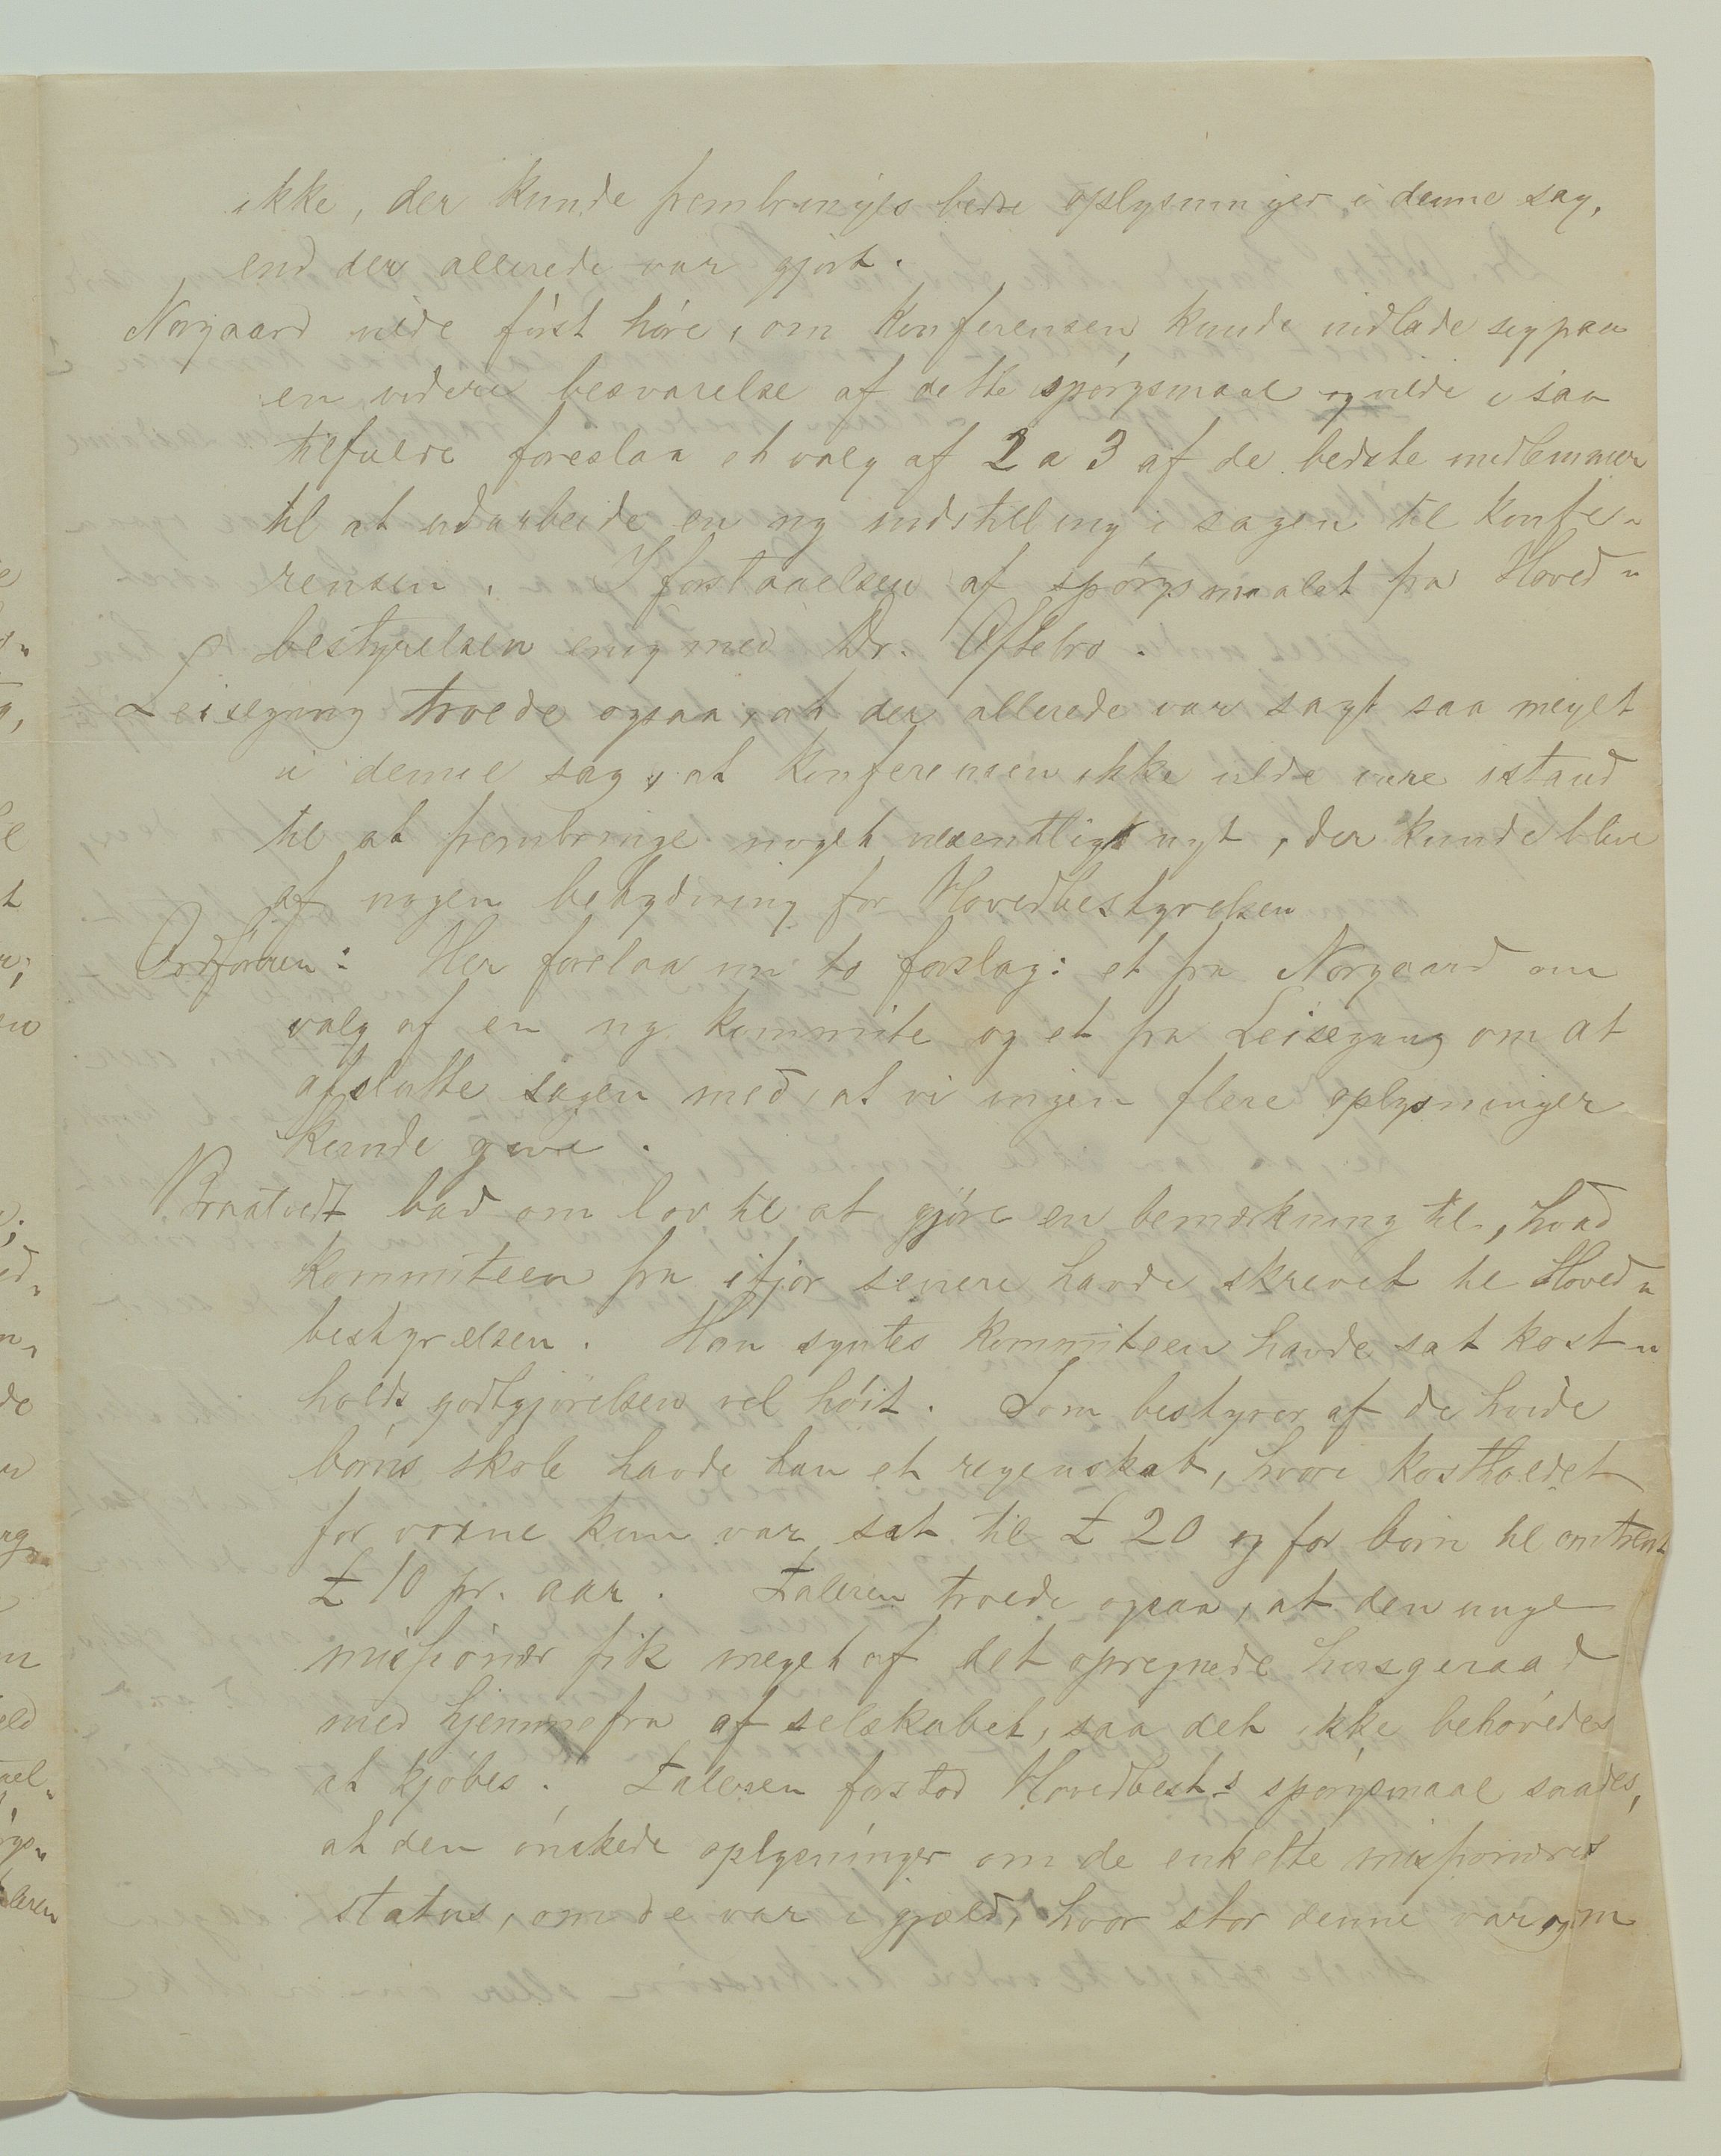 ikke, der kunde frembringes bedre oplysninger i denne sag,
end der allerede var gjort.
Norgaard vilde først høre, om Konferensen kunde indlade sig paa
en videre besvarelse af dette spørgsmaal og vilde i saa
tilfælde foreslaa et valg af 2 a 3 af de bedste medlemmer
til at udarbeide en ny indstilling i sagen til Konfe-
rensen. I forstaaelsen af spørgsmaalet fra Hoved-
bestyrelsen enig med Dr. Oftebro.
Leisegang troede ogsaa, at der allerede var sagt saa meget
i denne sag, at Konferensen ikke vilde være istand
til at frembringe noget væsentligt nyt, der kunde blive
af nogen betydning for Hovedbestyrelsen
Ordføreren: Her forelaa nu to forslag: et fra Norgaard om
valg af en ny kommite og et fra Leisegang om at
afslutte sagen med, at vi ingen flere oplysninger
kunde give.
Braatvedt bad om lov til at gjøre en bemærkning til, hvad
kommiteen fra ifjor senere havde skrevet til Hoved-
bestyrelsen. Han syntes kommiteen havde sat kost-
holds godtgjørelsen vel høit. Som bestyrer af de hvide
børns skole havde han et regnskab, hvori kostholdet
for voxne kun var sat til £ 20 og for børn til omtrent
£ 10 pr. aar. Taleren troede ogsaa, at den unge
missionær fik meget af det opregnede husgeraad
med hjemmefra af selskabet, saa det ikke behøvedes
at kjøbes. Taleren forstod Hovedbest.s spørgsmaal saales,
at den ønskede oplysninger om de enkelte missionærers
status, om de var i gjæld, hvor stor denne var, og om